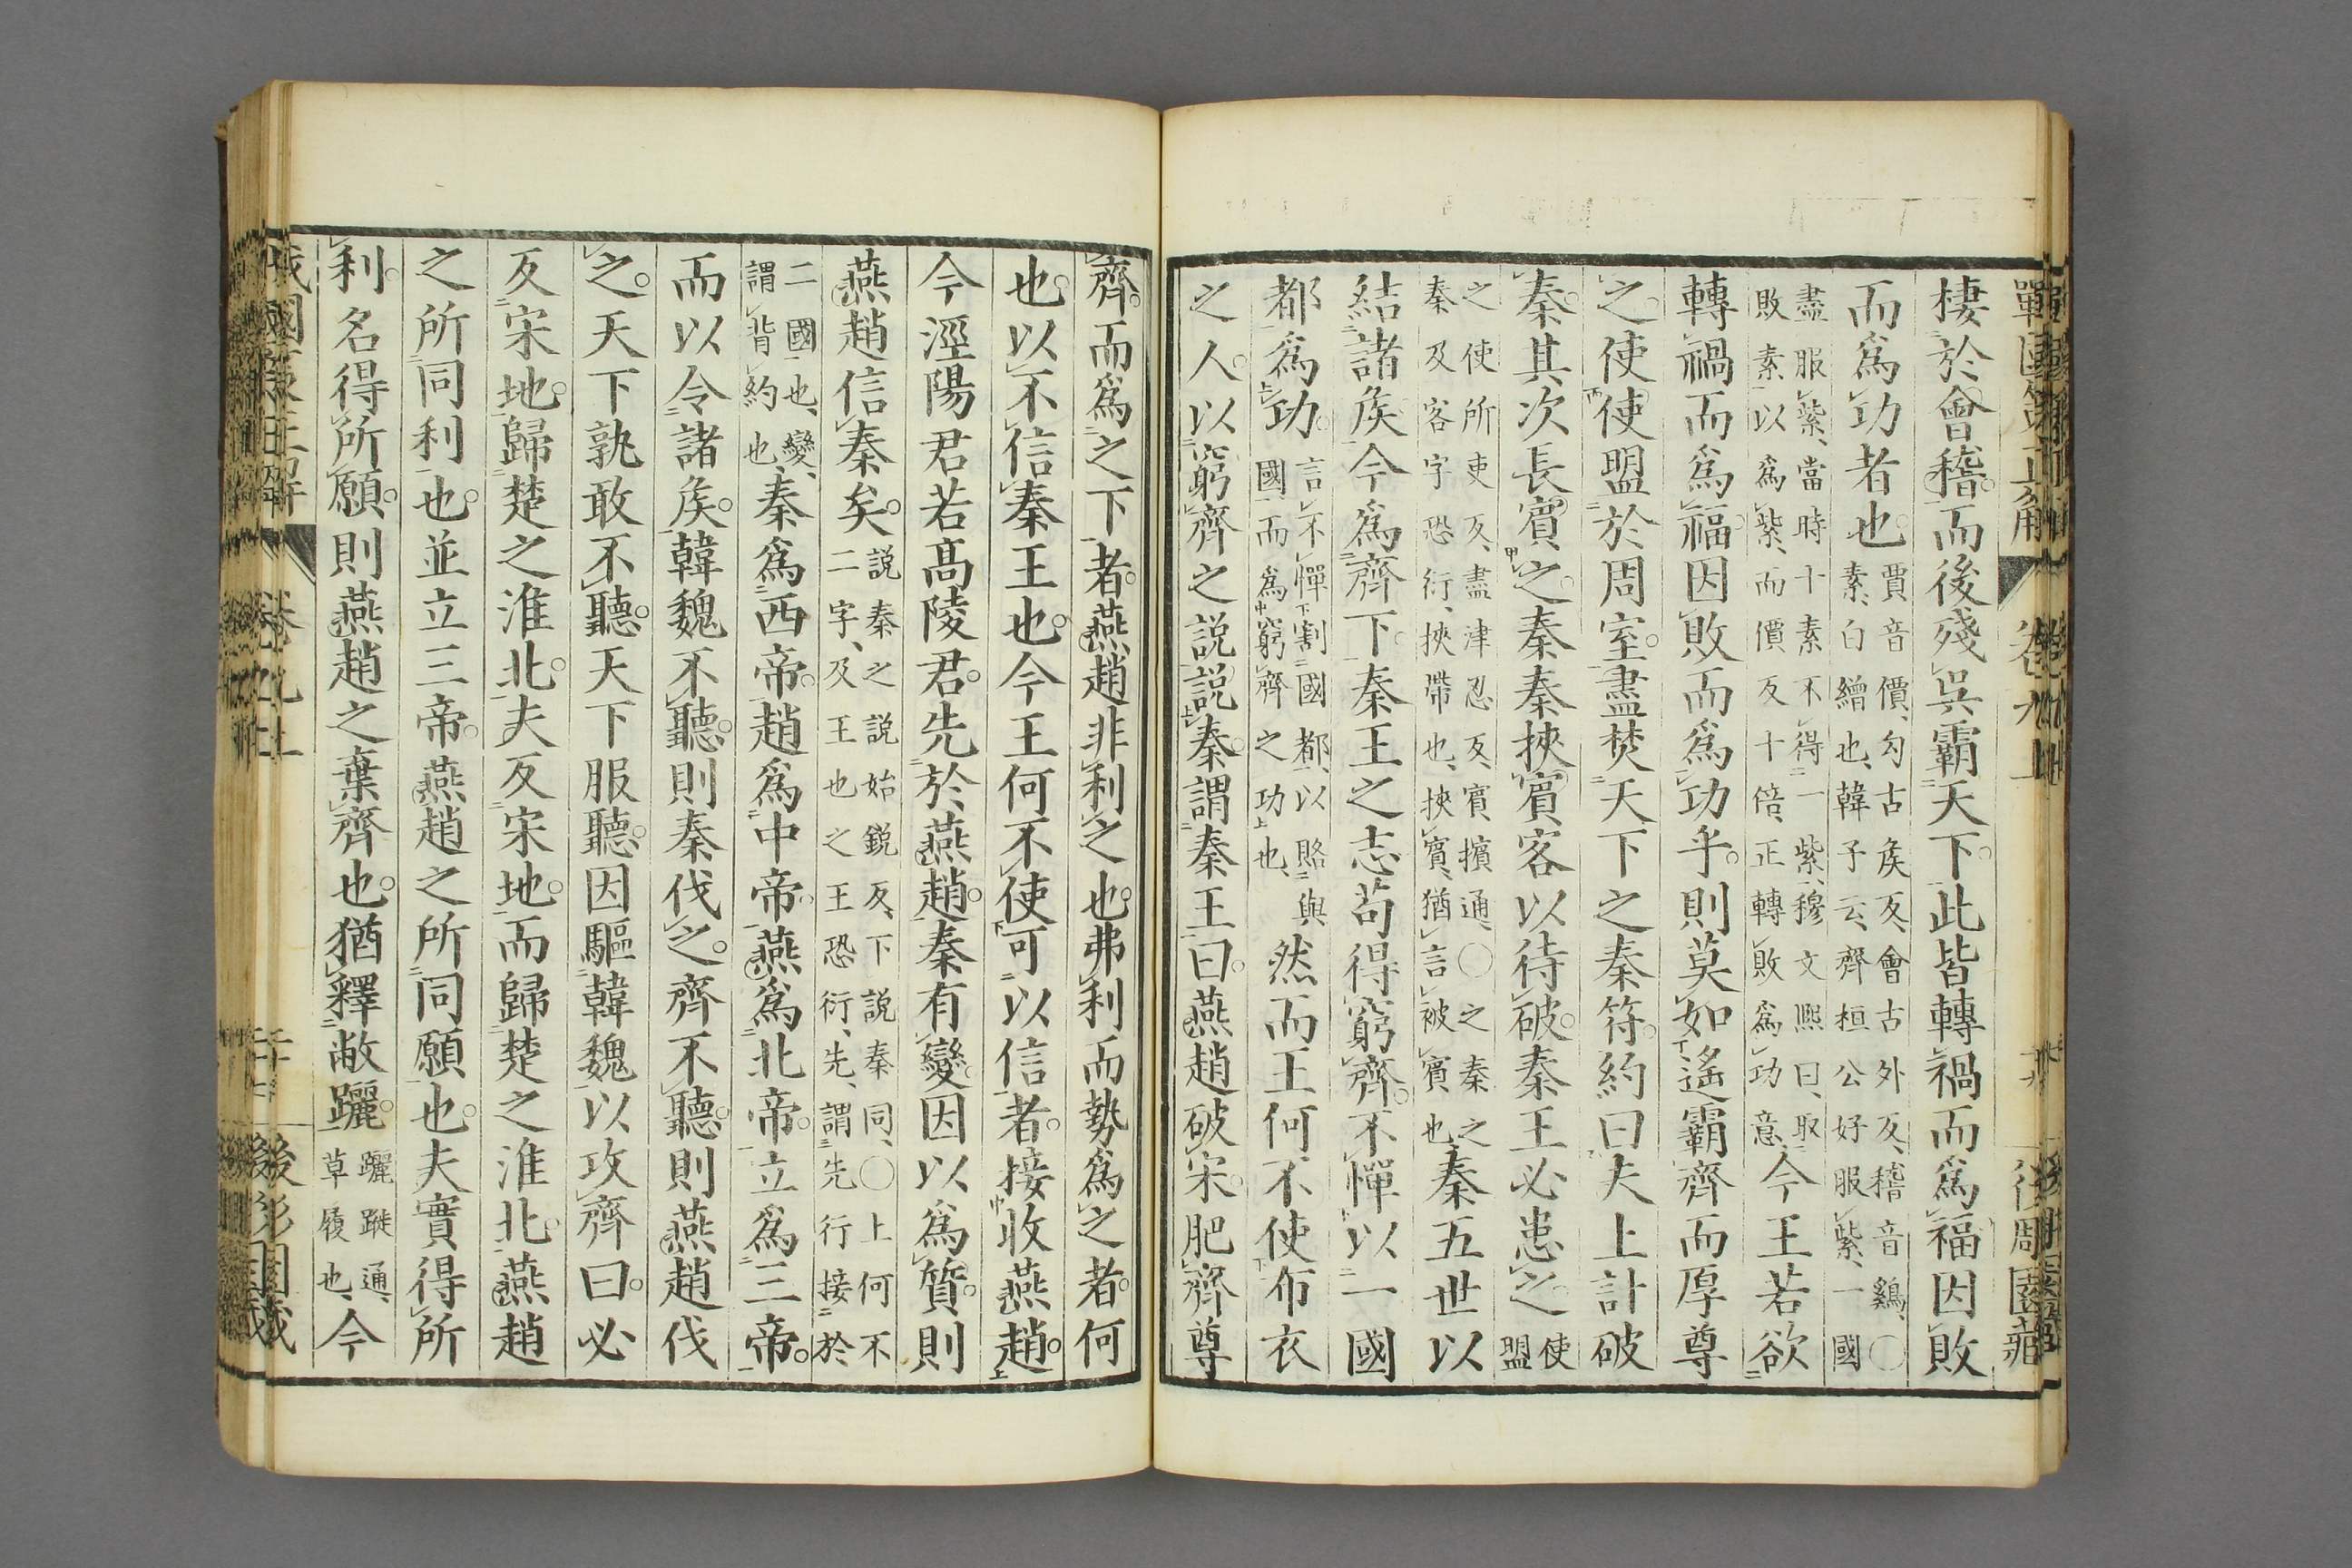 棲於會稽而後殘吳霸天下此皆轉禍而爲福因敗
而爲功者也賈音價勾古矦反會古外反稽音鷄〇素白繒也韓子云齊桓公好服紫一國
盡服紫當時十素不得一紫穆文熙曰取敗素以爲紫而價反十倍正轉敗爲功意今王若欲
轉禍而爲福因敗而爲功乎則莫如遙霸齊而厚尊
之使使盟於周室盡焚天下之秦符約曰夫上計破
秦其次長賓之秦秦挾賓客以待破秦王必患之使盟
之使所吏反盡津忍反賓擯通〇之秦之秦及客字恐衍挾帶也挾賓猶言被賓也秦五世以
結諸矦今爲齊下秦王之志苟得窮齊不憚以一國
都爲功言不憚割國都以賂與國而爲窮齊之功也然而王何不使布衣
之人以窮齊之説説秦謂秦王曰燕趙破宋肥齊尊
齊而爲之下者燕趙非利之也弗利而勢爲之者何
也以不信秦王也今王何不使可以信者接收燕趙
今涇陽君若髙陵君先於燕趙秦有變因以爲質則
燕趙信秦矣説秦之説始鋭反下説秦同〇上何不二字及王也之王恐衍先謂先行接於
二國也變謂背約也秦爲西帝趙爲中帝燕爲北帝立爲三帝
而以令諸矦韓魏不聽則秦伐之齊不聽則燕趙伐
之天下孰敢不聽天下服聽因驅韓魏以攻齊曰必
反宋地歸楚之淮北夫反宋地而歸楚之淮北燕趙
之所同利也並立三帝燕趙之所同願也夫實得所
利名得所願則燕趙之棄齊也猶釋敝躧躧蹝通草履也今